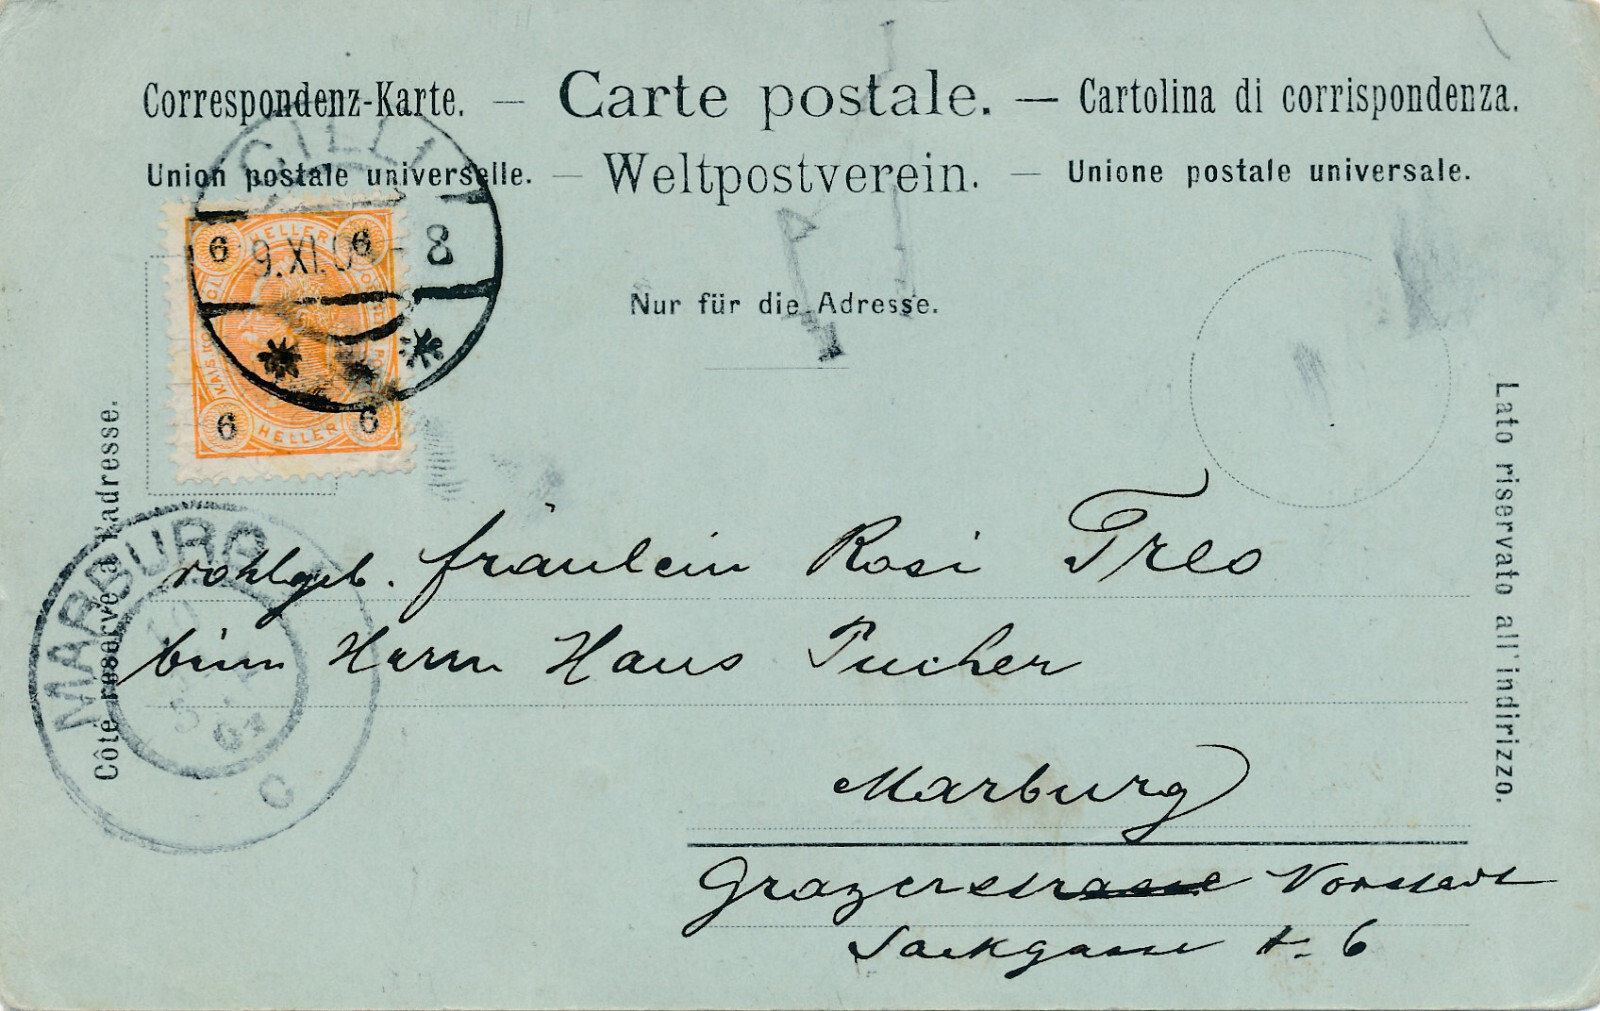 Correspondenz-Karte. — Carte postale. — Cartolina di corrispondenza.
Union postale universelle. — Weltpostverein. — Unione postale universale.
Nur für die Adresse.
CILLI
9.XI.0 -8
6 HELLER 6
KAIS. KÖNIGL.
6 HELLER 6
Côté réservé à l'adresse.
Lato riservato all'indirizzo.
MARBURG
C
wohlgeb. Fräulein Rosi Treo
beim Herrn Hans Pucher
Marburg
Grazerstrasse Vorstadt
Sackgasse 6